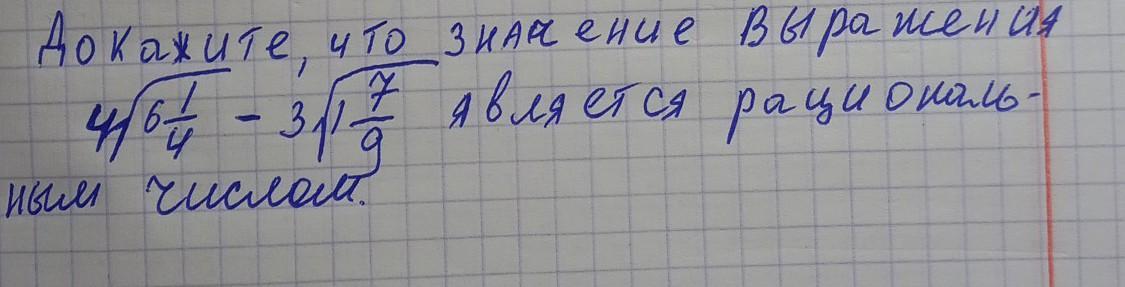 Докажите, что значение выражения
4√6 1/4 - 3√1 7/9 является рациональ-
ным числом.